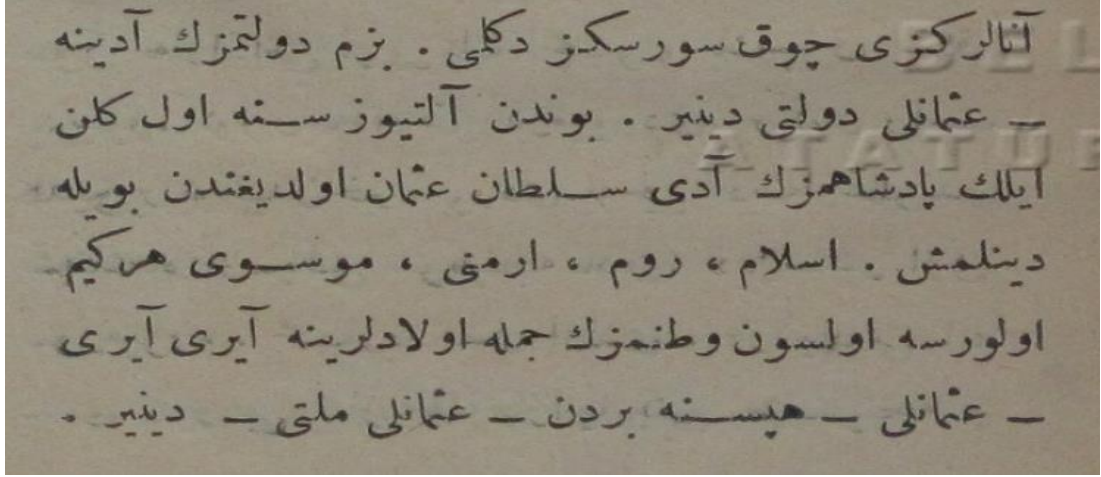 آنالركزی چوق سورسكز دكلمی . بزم دولتمزك آدینه
ـ عثمانلی دولتی دینیر . بوندن آلتیوز سنه اول كلن
ایلك پادشاهمزك آدی سلطان عثمان اولدیغندن بویله
دینلمش . اسلام ، روم ، ارمنی ، موسوی هركیم
اولورسه اولسون وطنمزك جمله اولادلرینه آیری آیری
ـ عثمانلی ـ هپسنه بردن ـ عثمانلی ملتی ـ دینیر .